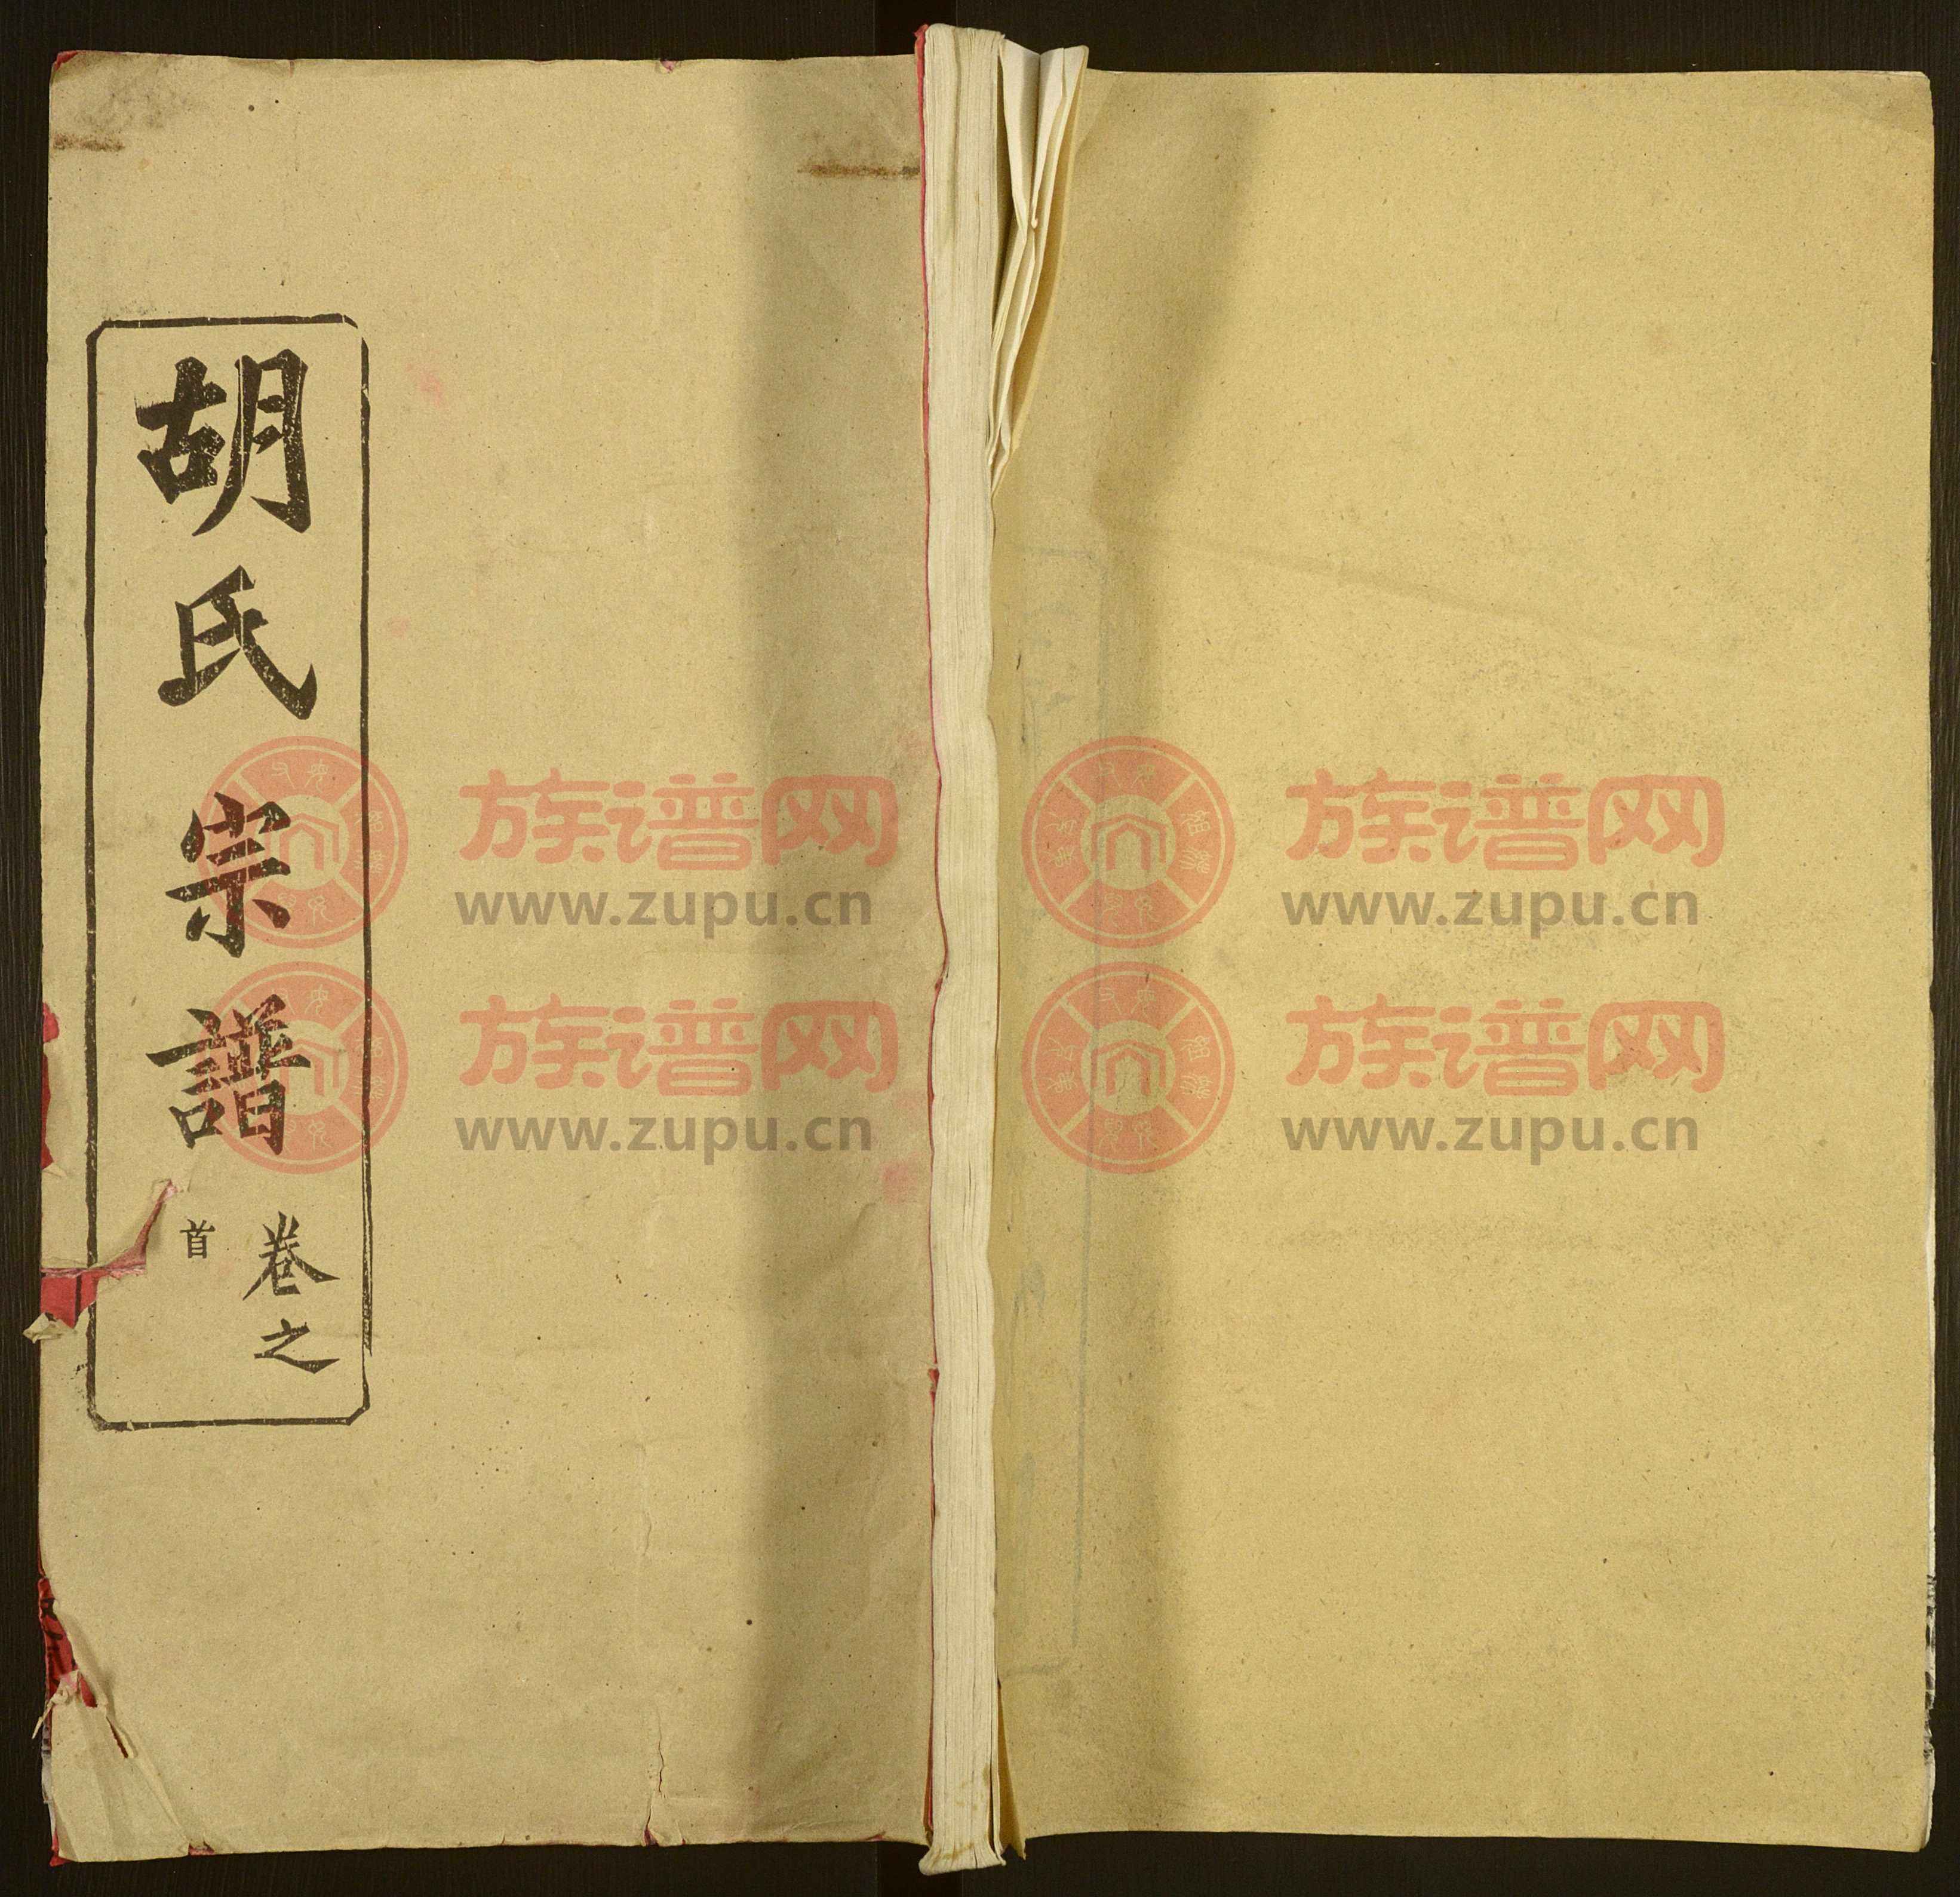 胡氏宗譜
卷之
首
族谱网
www.zupu.cn
族谱网
www.zupu.cn
族谱网
www.zupu.cn
族谱网
www.zupu.cn